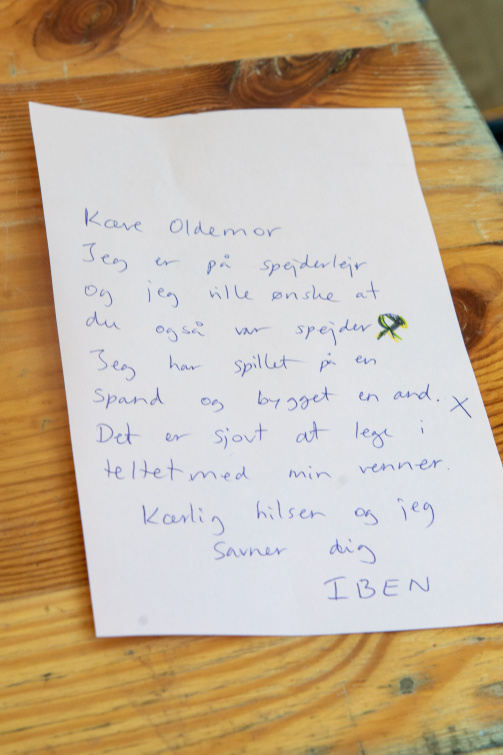 Kære Oldemor
Jeg er på spejderlejr
og jeg ville ønske at
du også var spejder
Jeg har spillet på en
spand og bygget en and. X
Det er sjovt at lege i
teltet med min venner.
Kærlig hilsen og jeg
Savner dig
IBEN